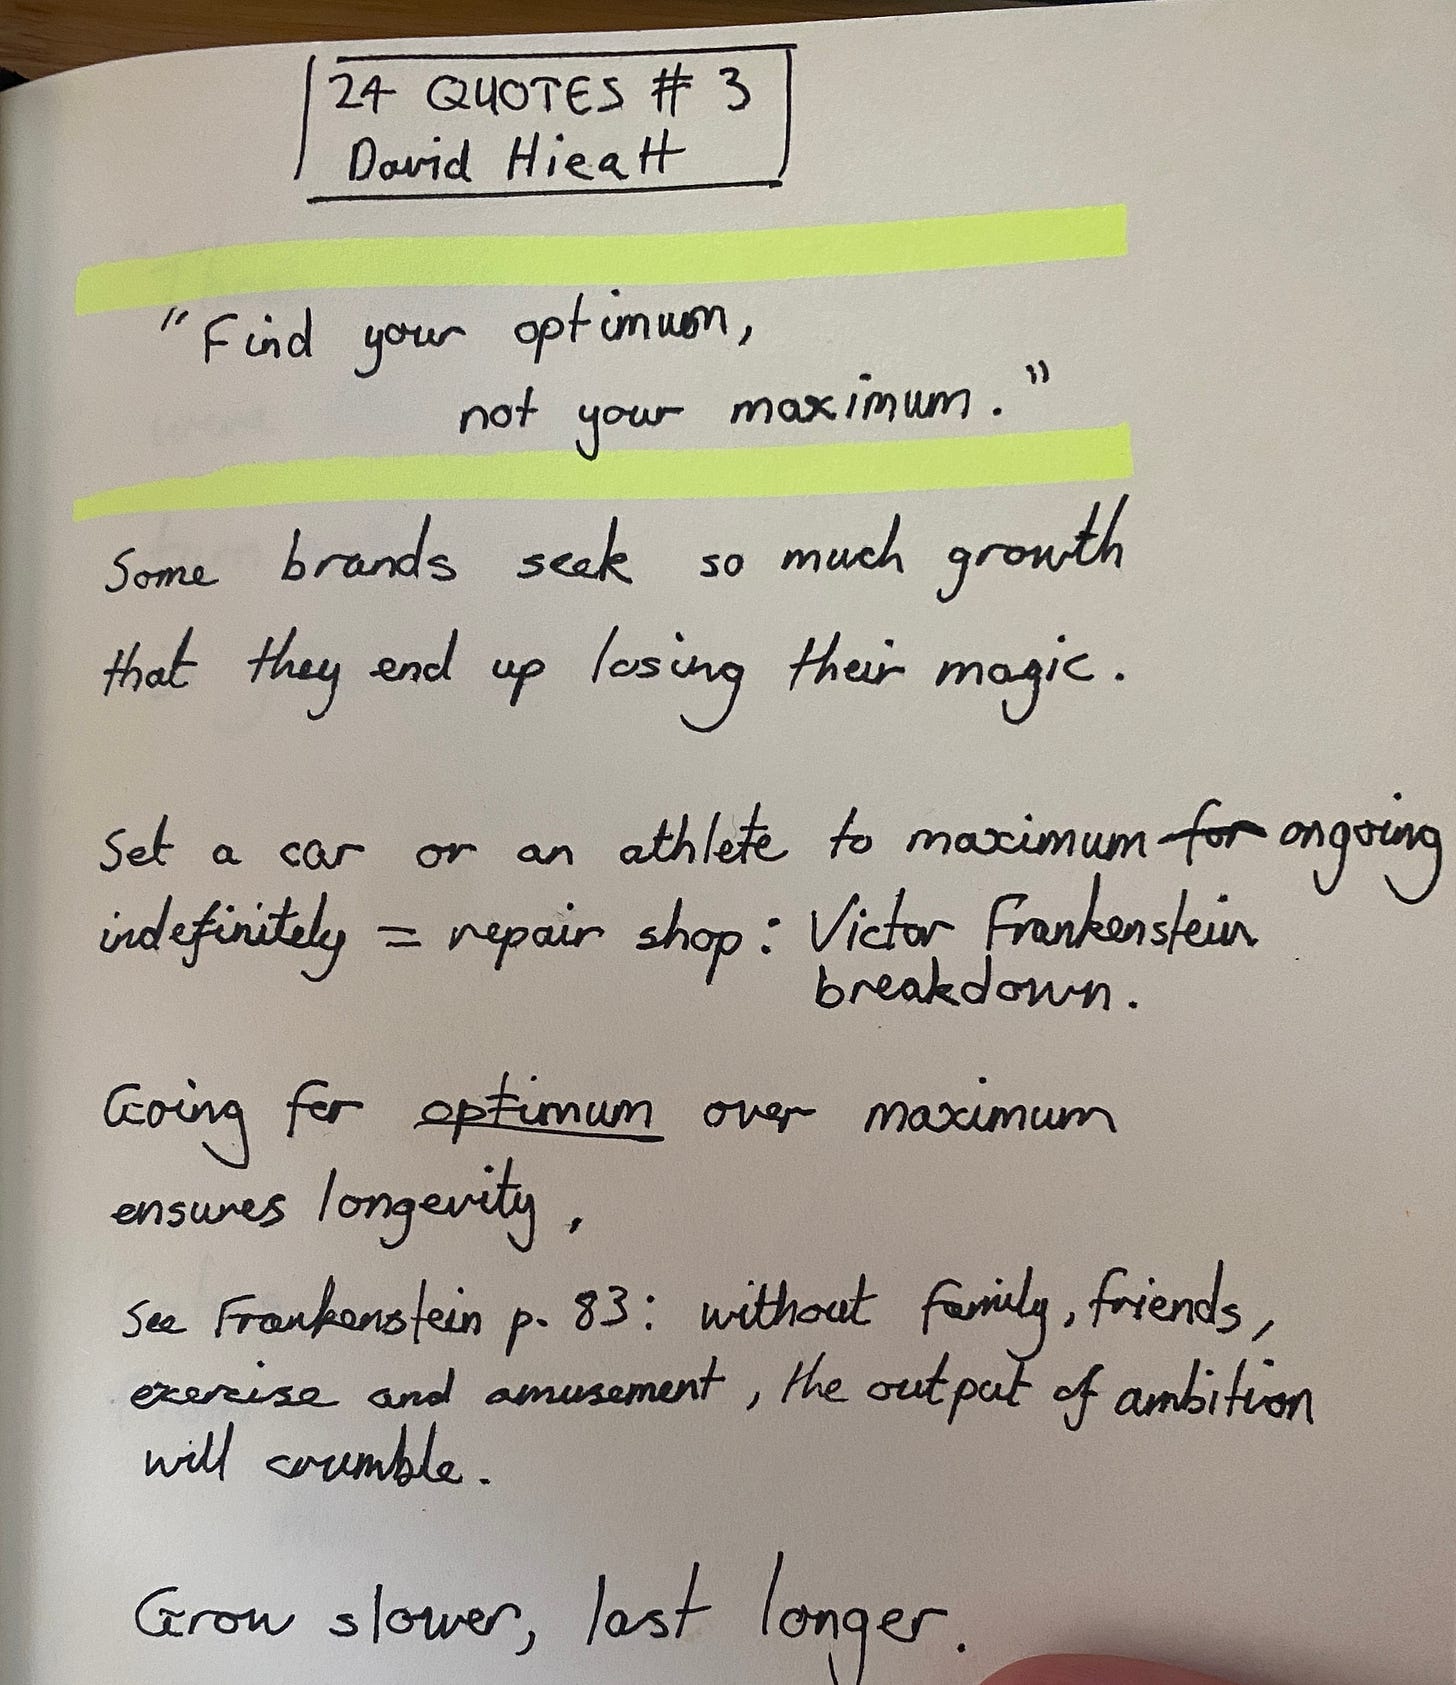 24 QUOTES # 3
David Hieatt
"Find your optimum,
not your maximum."
Some brands seek so much growth
that they end up losing their magic.
Set a car or an athlete to maximum for ongoing
indefinitely = repair shop: Victor Frankenstein
breakdown.
Going for optimum over maximum
ensures longevity,
See Frankenstein p. 83: without family, friends,
exercise and amusement, the output of ambition
will crumble.
Grow slower, last longer.